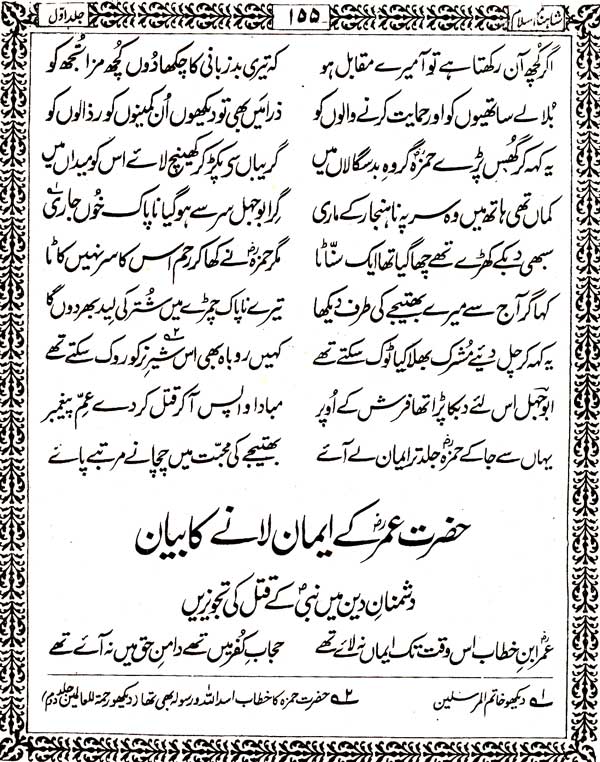 شاہنامۂ اسلام ۱۵۵ جلد اوّل
اگر کُچھ آن رکھتا ہے تو آ میرے مقابل ہو کہ تیری بدزبانی کا چکھا دُوں کُچھ مزا تُجھ کو
بُلا لے ساتھیوں کو اور حمایت کرنے والوں کو ذرا مَیں بھی تو دیکھوں اُن کمینوں کو رذالوں کو
یہ کہہ کر گُھس پڑے حمزہؓ گروہِ بدسگالاں میں گریباں سی پکڑ کر کھینچ لائے اس کو میداں میں
کماں تھی ہاتھ میں وہ سر پہ ناہنجار کے ماری گرا بوجہل سر سے ہو گیا ناپاک خُوں جاری ۱
سبھی دبکے کھڑے تھے چھا گیا تھا ایک سنّاٹا مگر حمزہؓ نے کھا کر رحم اس کا سر نہیں کاٹا
کہا گر آج سے میرے بھتیجے کی طرف دیکھا تیرے ناپاک چمڑے میں شُتر کی لید بھر دوں گا
یہ کہہ کر چل دیئے مُشرک بھلا کیا ٹوک سکتے تھے کہیں روباہ بھی اس شیرِ نر ۲ کو روک سکتے تھے
ابوجہل اس لئے دبکا پڑا تھا فرش کے اُوپر مبادا واپس آ کر قتل کر دے عمِّ پیغمبر
یہاں سے جا کے حمزہؓ جلد تر ایمان لے آئے بھتیجے کی محبّت میں چچا نے مرتبے پائے
حضرت عمرؓ کے ایمان لانے کا بیان
دشمنانِ دین میں نبیؐ کے قتل کی تجویزیں
عمرؓ ابنِ خطاب اس وقت تک ایماں نہ لائے تھے حجابِ کُفر میں تھے دامنِ حق میں نہ آئے تھے
۱ دیکھو خاتم المرسلین ۲ حضرت حمزہ کا خطاب اسد اللہ و رسولہ بھی تھا (دیکھو رحمۃ للعالمین جلد دوم)